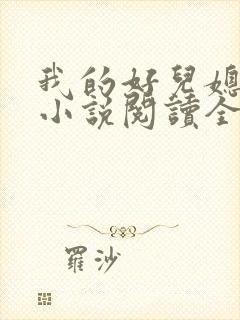 我的好兒媳
小說閱讀全
羅沙